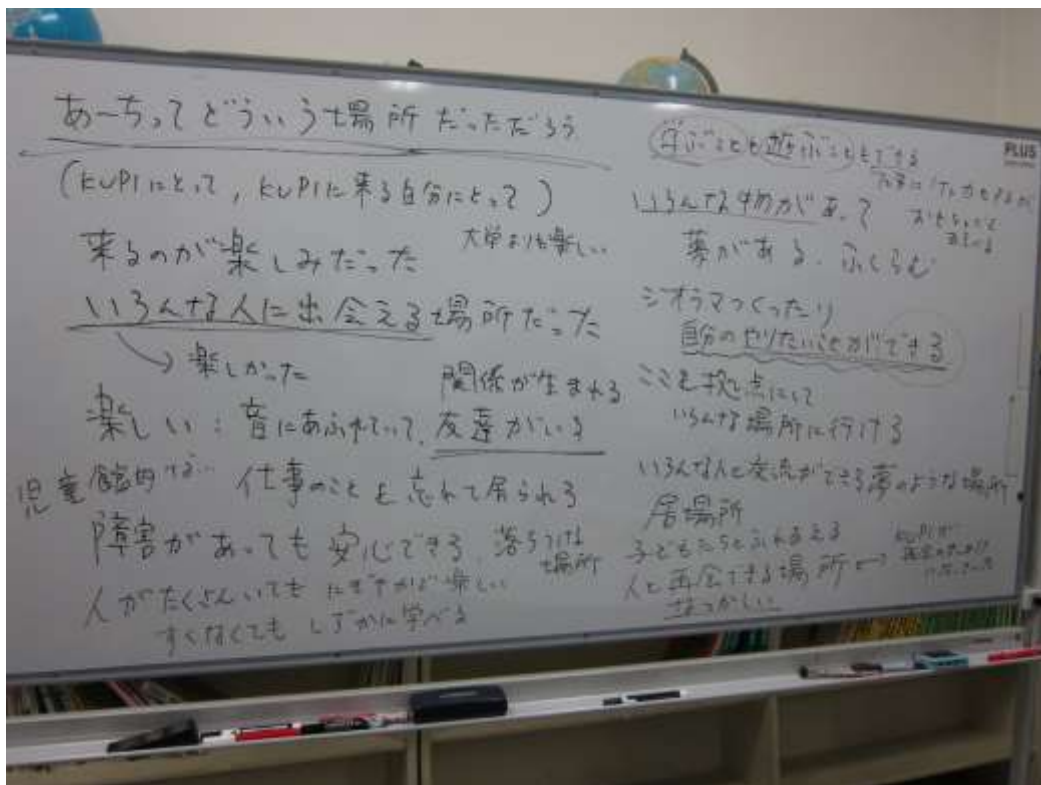 あ〜ちってどういう場所だっただろう
(KUPIにとって, KUPIに来る自分にとって)
来るのが楽しみだった
大学よりも楽しい
いろんな人に出会える場所だった
→楽しかった
関係が生まれる
楽しい：音にあふれていて、友達がいる
児童館的な
仕事のことを忘れて居られる
障害があっても安心できる、落ちつける場所
人がたくさんいても にぎやかで楽しい
すくなくても しずかに学べる
学ぶことも遊ぶこともできる
PLUS
いろんな物があって
おもちゃで
夢がある、ふくらむ
ジオラマつくったり
自分のやりたいことができる
ここを拠点にして
いろんな場所に行ける
いろんな人と交流ができる夢のような場所
居場所
子どもたちとふれあえる
人と再会できる場所
KUPIが
なつかしい